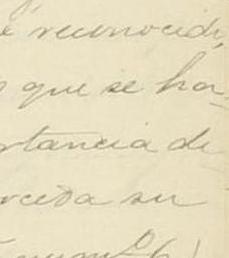 é reconocidi
que se ha-
rtancia de
rceda su